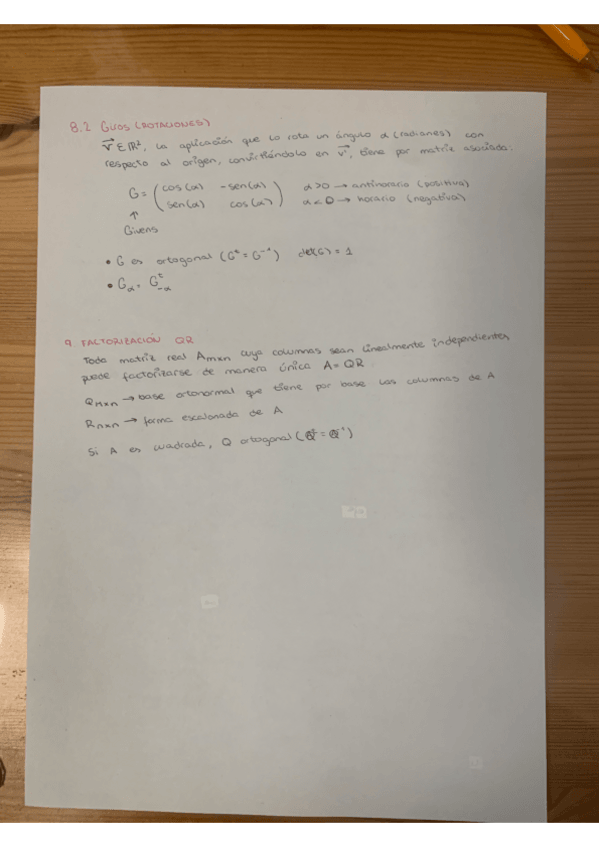 8.2 GIROS (ROTACIONES)
v⃗ ∈ ℝ², la aplicación que lo rota un ángulo α (radianes) con
respecto al origen, convirtiéndolo en v⃗', tiene por matriz asociada:
G = ( cos(α) -sen(α) ) α > 0 → antihorario (positiva)
( sen(α) cos(α) ) α < 0 → horario (negativa)
↑
Givens
• G es ortogonal (Gᵗ = G⁻¹) det(G) = 1
• G_α = Gᵗ_-α
9 FACTORIZACIÓN QR
Toda matriz real Amxn cuya columnas sean linealmente independientes
puede factorizarse de manera única A = QR
Qmxn → base ortonormal que tiene por base las columnas de A
Rnxn → forma escalonada de A
Si A es cuadrada, Q ortogonal (Qᵗ = Q⁻¹)